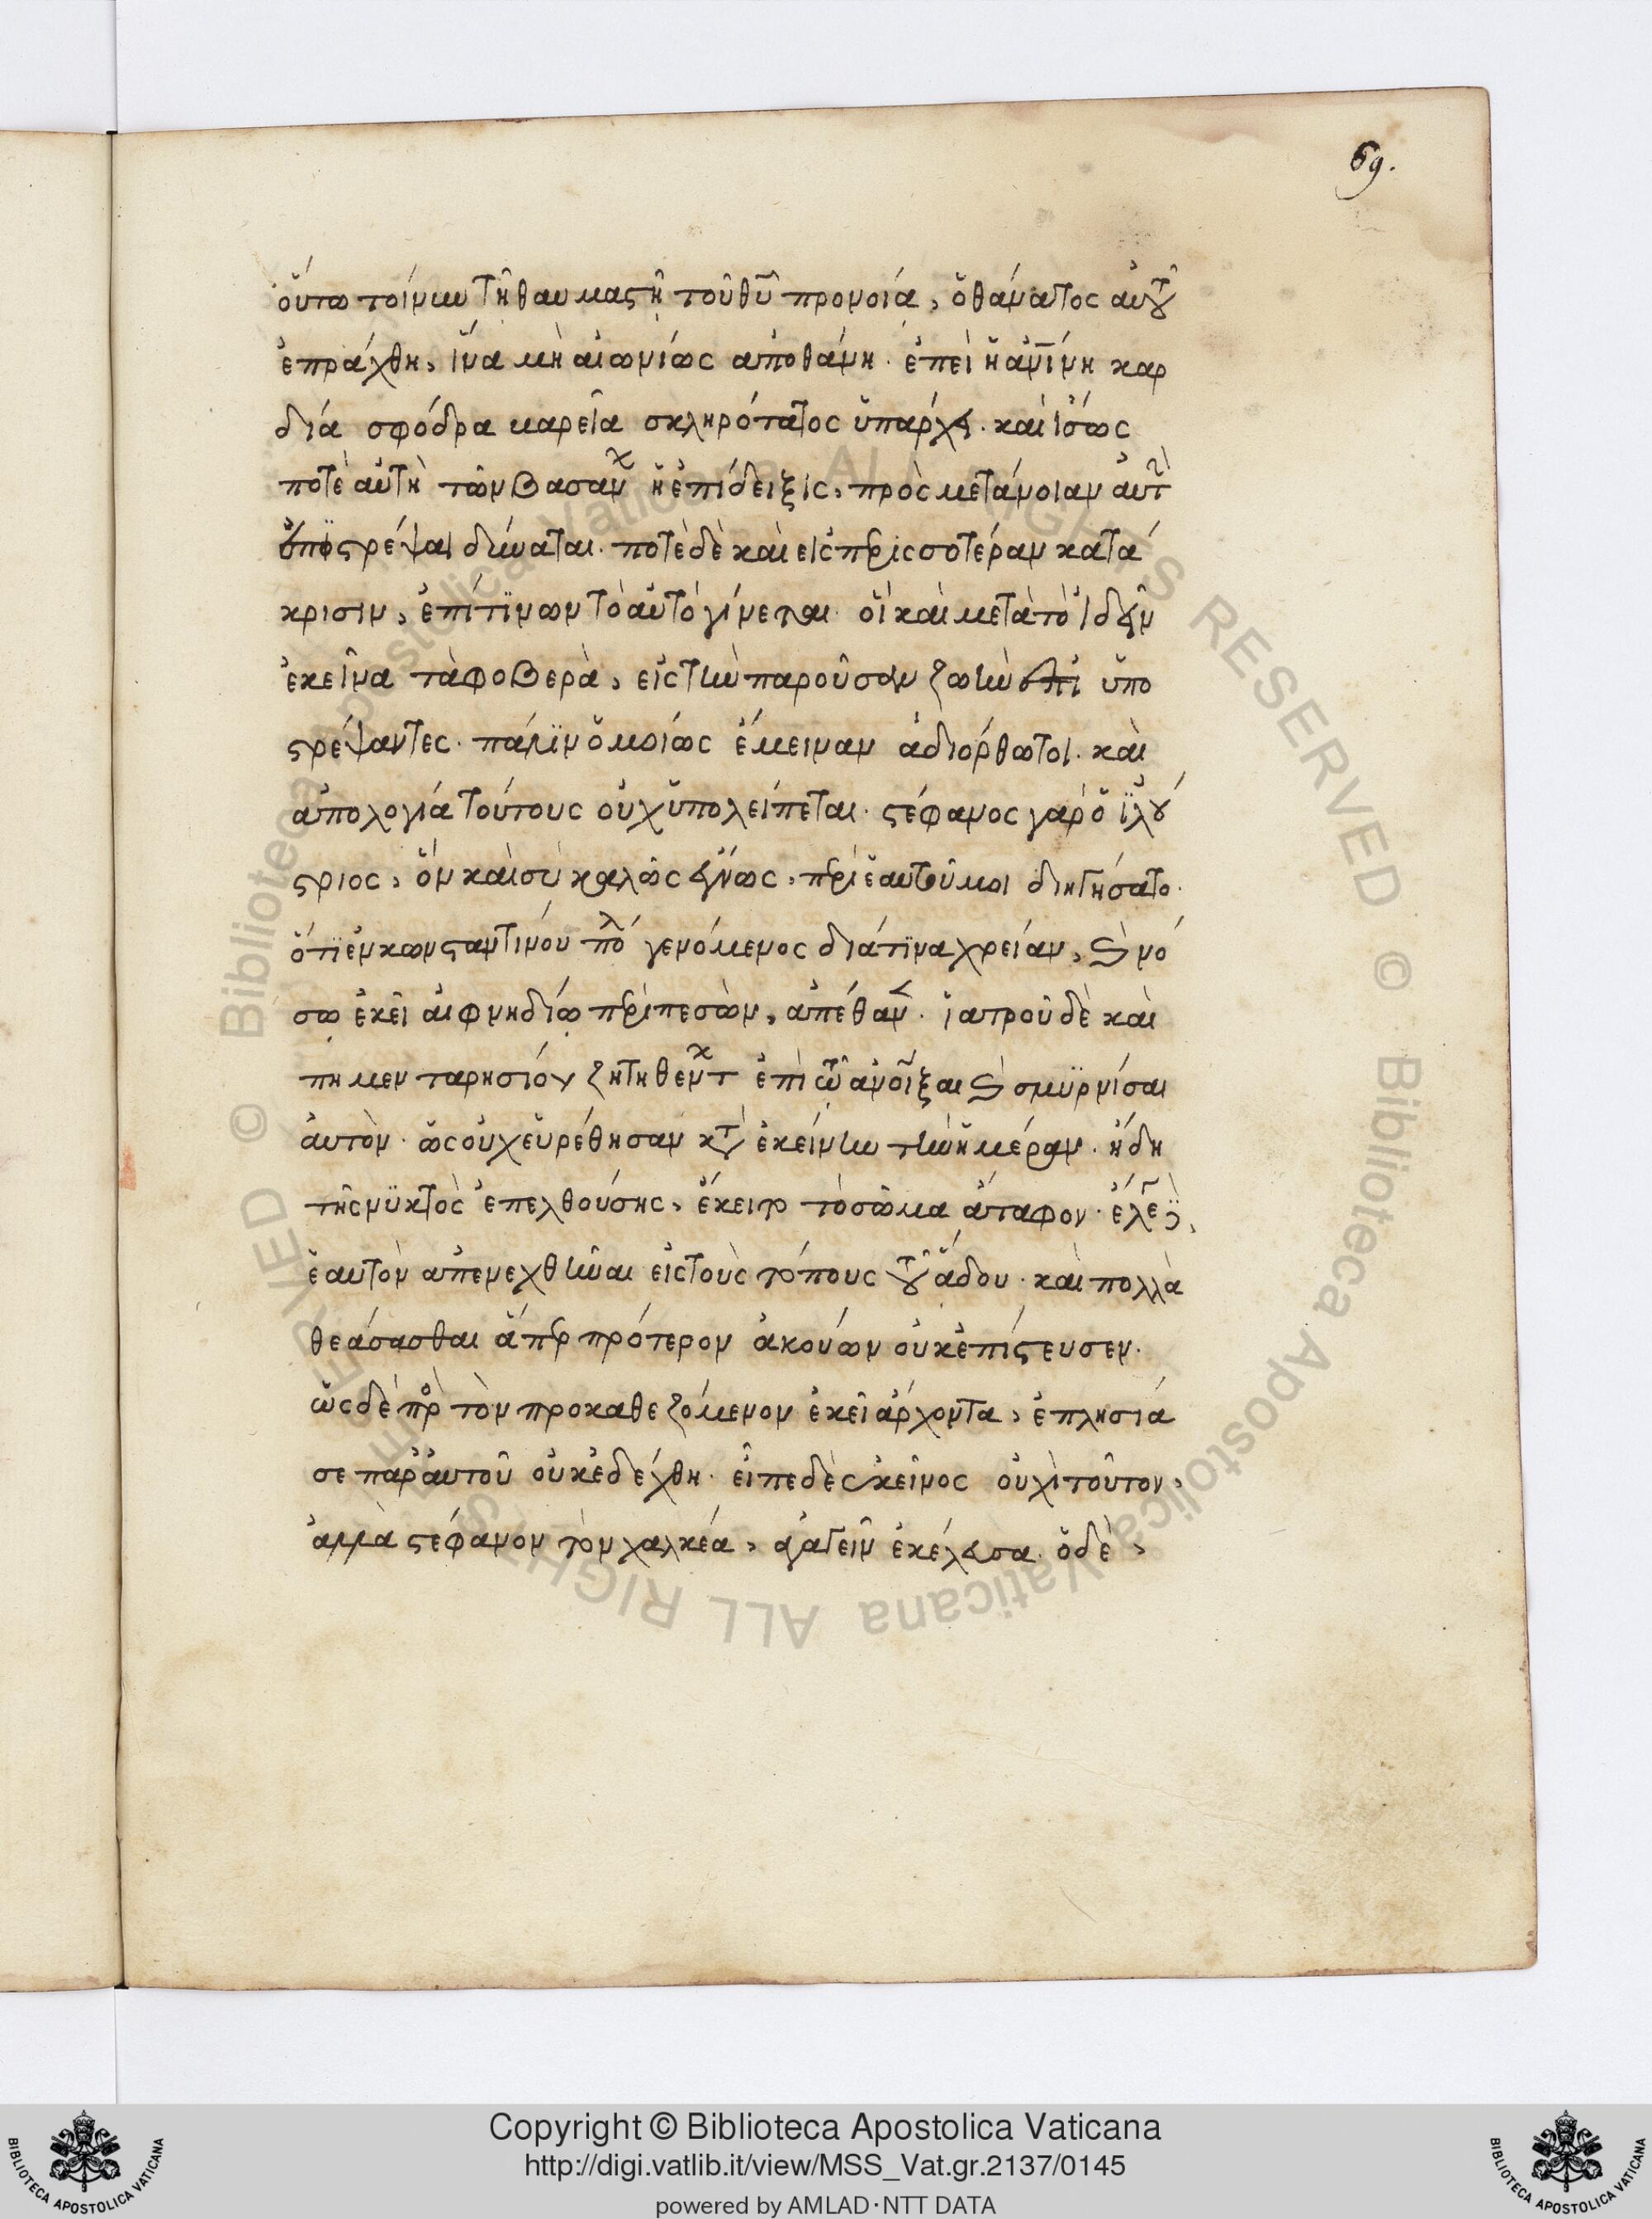 69.
οὕτω τοίνυν τῆ θαυμαστῆ τοῦ θῦ προνοία, ὁ θάνατος αυτοῦ
ἐπράχθη, ἵνα μὴ αἰωνίως αποθάνη. ἐπεὶ ἡ ἀνίνη καρ
δία σφόδρα καρεῖα σκληρότατος ὑπάρχει. καὶ ἴσως
ποτὲ αὐτὴ τῶν βασάν ἡ ἐπίδειξις, πρὸς μετάνοιαν ἀυτ
ὑποστρέψαι δύναται. ποτὲ δὲ καὶ εἰς περισσοτέραν κατά
κρισιν, ἐπίτϊνων τὸ αὐτὸ γίνεται. οἳ καὶ μετὰ τὸ ἰδεῖν
ἐκεῖνα τὰ φοβερὰ, εἰς τὴν παροῦσαν ζωὴν ὑπο
στρέψαντες. πάλϊν ὁμοίως ἔμειναν ἀδιόρθωτοι. καὶ
ἀπολογία τούτους οὐχ ὑπολείπεται. στέφανος γὰρ ὁ ἰλού
στριος, ὃν καὶ σὺ καλῶς ἔγνως, περὶ ἑαυτοῦ μοι διηγήσατο.
ὅτϊ ἐν κωνσταντινου πό γενόμενος διά τϊνα χρείαν, καὶ νό
σω ἐκεῖ αἰφνηδίω περιπεσὼν, ἀπέθαν. ἰατροῦ δὲ καὶ
πημενταρησίου ζητηθεντ ἐπὶ τῶ ἀνοῖξαι καὶ σμϋρνίσαι
ἀυτὸν. ὡς οὐχ εὑρέθησαν κατ ἐκείνην τὴν ἡμέραν. ἤδη
τῆς νϋκτὸς ἐπελθούσης, ἔκειτο τὸ σῶμα άταφον. ἔλεγ,
ἑαυτὸν ἀπενεχθῆναι εἰς τοὺς τόπους τοῦ ἅδου. καὶ πολλὰ
θεάσασθαι ἅπερ πρότερον ἀκούων οὐκ ἐπίστευσεν.
ὡς δὲ πρὸ τὸν προκαθεζόμενον ἐκεῖ ἄρχοντα, ἐπλησία
σε παρ ἀυτοῦ οὐκ ἐδέχθη. εἶπε δὲ ἐκεῖνος οὐχὶ τοῦτον,
ἀλλὰ στέφανον τὸν χαλκέα, ἀγαγεῖν ἐκέλευσα. ὁ δὲ,
Copyright © Biblioteca Apostolica Vaticana
http://digi.vatlib.it/view/MSS_Vat.gr.2137/0145
powered by AMLAD·NTT DATA